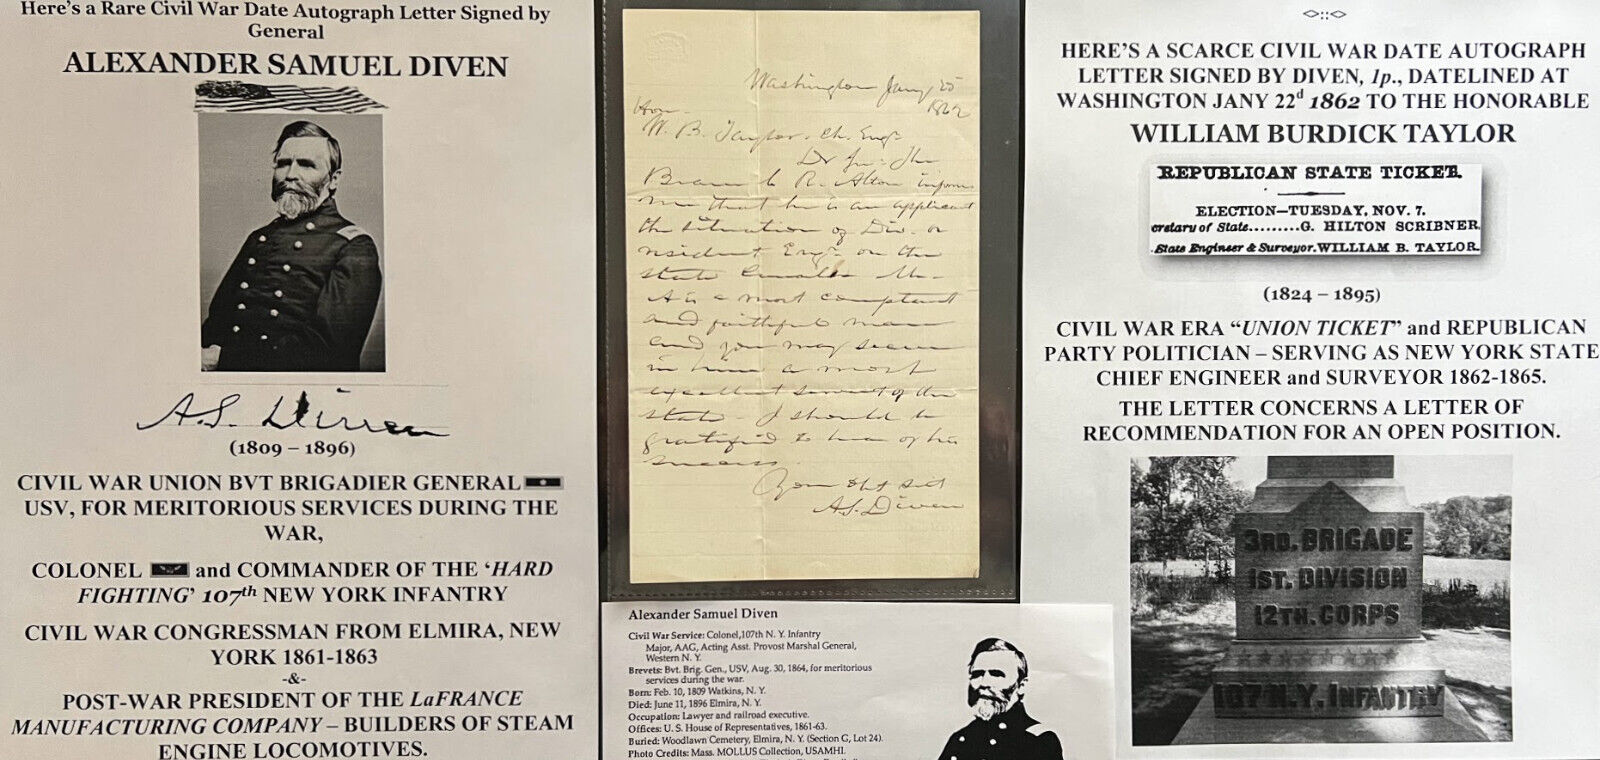 Here's a Rare Civil War Date Autograph Letter Signed by
General
ALEXANDER SAMUEL DIVEN
A.S. Diven
(1809 – 1896)
CIVIL WAR UNION BVT BRIGADIER GENERAL
USV, FOR MERITORIOUS SERVICES DURING THE
WAR,
COLONEL and COMMANDER OF THE ‘HARD
FIGHTING’ 107th NEW YORK INFANTRY
CIVIL WAR CONGRESSMAN FROM ELMIRA, NEW
YORK 1861-1863
-&-
POST-WAR PRESIDENT OF THE LaFRANCE
MANUFACTURING COMPANY – BUILDERS OF STEAM
ENGINE LOCOMOTIVES.
Washington Jany
1862
Hon.
W. B. Taylor. Ch. Engr.
Dr Sir: The
R. Alton informs
me that he is an applicant
the situation of Div. or
resident Engr. on the
state Canals. Mr.
A is a most competent
and faithful man
and you may secure
in him a most
excellent servant of the
state I should be
gratified to hear of his
success
Your Obt Svt
A.S. Diven
Alexander Samuel Diven
Civil War Service: Colonel,107th N. Y. Infantry
Major, AAG, Acting Asst. Provost Marshal General,
Western N. Y.
Brevets: Bvt. Brig. Gen., USV, Aug. 30, 1864, for meritorious
services during the war.
Born: Feb. 10, 1809 Watkins, N. Y.
Died: June 11, 1896 Elmira, N. Y.
Occupation: Lawyer and railroad executive.
Offices: U. S. House of Representatives, 1861-63.
Buried: Woodlawn Cemetery, Elmira, N. Y. (Section G, Lot 24).
Photo Credits: Mass. MOLLUS Collection, USAMHI.
<>::<>
HERE'S A SCARCE CIVIL WAR DATE AUTOGRAPH
LETTER SIGNED BY DIVEN, 1p., DATELINED AT
WASHINGTON JANY 22d 1862 TO THE HONORABLE
WILLIAM BURDICK TAYLOR
REPUBLICAN STATE TICKET.
ELECTION—TUESDAY, NOV. 7.
cretary of State.........G. HILTON SCRIBNER.
State Engineer & Surveyor.WILLIAM B. TAYLOR.
(1824 – 1895)
CIVIL WAR ERA “UNION TICKET” and REPUBLICAN
PARTY POLITICIAN – SERVING AS NEW YORK STATE
CHIEF ENGINEER and SURVEYOR 1862-1865.
THE LETTER CONCERNS A LETTER OF
RECOMMENDATION FOR AN OPEN POSITION.
3RD. BRIGADE
1ST. DIVISION
12TH. CORPS
107 N.Y. INFANTRY